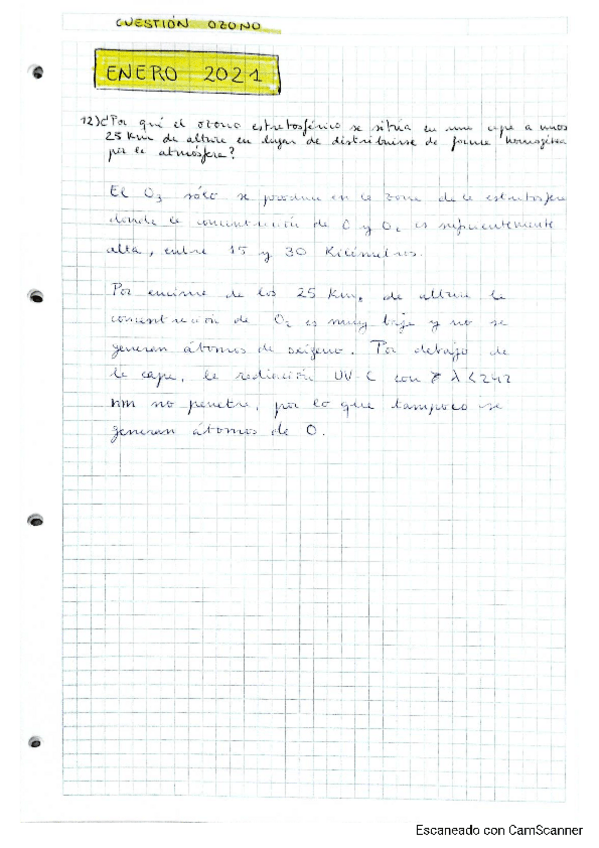 CUESTIÓN OZONO
ENERO 2021
12) ¿Por qué el ozono estratosférico se sitúa en una capa a unos
25 Km de altura en lugar de distribuirse de forma homogénea
por la atmósfera?
El O3 sólo se produce en la zona de la estratosfera
donde la concentración de O y O2 es suficientemente
alta, entre 15 y 30 Kilómetros.
Por encima de los 25 Km, de altura la
concentración de O2 es muy baja y no se
generan átomos de oxígeno. Por debajo de
la capa, la radiación UV-C con λ < 242
nm no penetra, por lo que tampoco se
generan átomos de O.
Escaneado con CamScanner